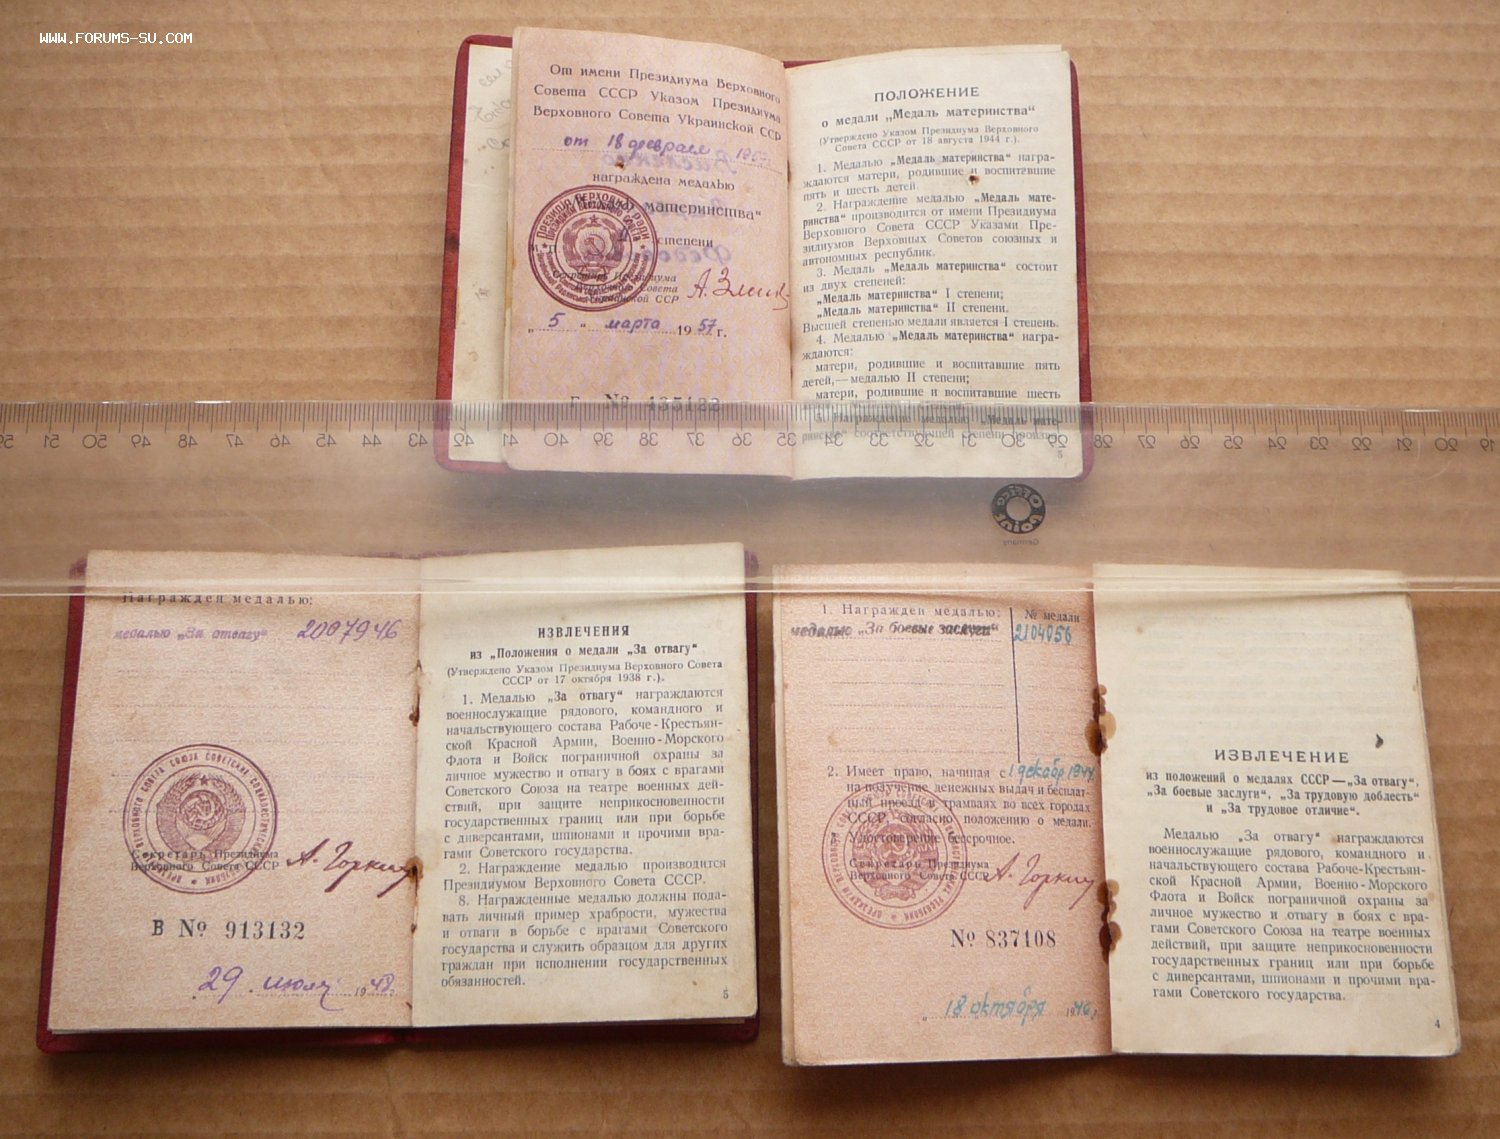 WWW.FORUMS-SU.COM
От имени Президиума Верховного
Совета СССР Указом Президиума
Верховного Совета Украинской ССР
от 18 февраля 1957
награждена медалью
материнства"
II степени
Секретарь Президиума
Верховного Совета
Украинской ССР
„ 5 " марта 1957 г.
Г № 435133
ПОЛОЖЕНИЕ
о медали „Медаль материнства"
(Утверждено Указом Президиума Верховного
Совета СССР от 18 августа 1944 г.).
1. Медалью „Медаль материнства" награ-
ждаются матери, родившие и воспитавшие
пять и шесть детей.
2. Награждение медалью „Медаль мате-
ринства" производится от имени Президиума
Верховного Совета СССР Указами Пре-
зидиумов Верховных Советов союзных и
автономных республик.
3. Медаль „Медаль материнства" состоит
из двух степеней:
„Медаль материнства" I степени;
„Медаль материнства" II степени.
Высшей степенью медали является I степень.
4. Медалью „Медаль материнства" награ-
ждаются:
матери, родившие и воспитавшие пять
детей,—медалью II степени;
матери, родившие и воспитавшие шесть
5. Награждение медалью „Медаль мате-
ринства" соответствующей степени произво-
5
59 51 50 49 48 47 46 45 44 43 42 41 40 39 38 37 36 35 34 33 32 31 30 29 28 27 26 25 24 23 22 21 20 19
Germany
Награжден медалью:
медалью „За отвагу" 2007946
Секретарь Президиума
Верховного Совета СССР
А. Горкин
В № 913132
29 июля 1948
ИЗВЛЕЧЕНИЯ
из „Положения о медали „За отвагу"
(Утверждено Указом Президиума Верховного Совета
СССР от 17 октября 1938 г.).
1. Медалью „За отвагу" награждаются
военнослужащие рядового, командного и
начальствующего состава Рабоче-Крестьян-
ской Красной Армии, Военно-Морского
Флота и Войск пограничной охраны за
личное мужество и отвагу в боях с врагами
Советского Союза на театре военных дей-
ствий, при защите неприкосновенности
государственных границ или при борьбе
с диверсантами, шпионами и прочими вра-
гами Советского государства.
2. Награждение медалью производится
Президиумом Верховного Совета СССР.
8. Награжденные медалью должны пода-
вать личный пример храбрости, мужества
и отваги в борьбе с врагами Советского
государства и служить образцом для других
граждан при исполнении государственных
обязанностей.
5
1. Награжден медалью:
№ медали
медалью „За боевые заслуги"
2104056
2. Имеет право, начиная с 1 декабр 1944
на получение денежных выдач и бесплат-
ный проезд в трамваях во всех городах
СССР, согласно положению о медали.
Удостоверение бессрочное.
Секретарь Президиума
Верховного Совета СССР
А. Горкин
№ 837108
„ 18 октября 1946 г.
ИЗВЛЕЧЕНИЕ
из положений о медалях СССР — „За отвагу",
„За боевые заслуги", „За трудовую доблесть"
и „За трудовое отличие".
Медалью „За отвагу" награждаются
военнослужащие рядового, командного и
начальствующего состава Рабоче-Крестьян-
ской Красной Армии, Военно-Морского
Флота и Войск пограничной охраны за
личное мужество и отвагу в боях с вра-
гами Советского Союза на театре военных
действий, при защите неприкосновенности
государственных границ или при борьбе
с диверсантами, шпионами и прочими вра-
гами Советского государства.
4